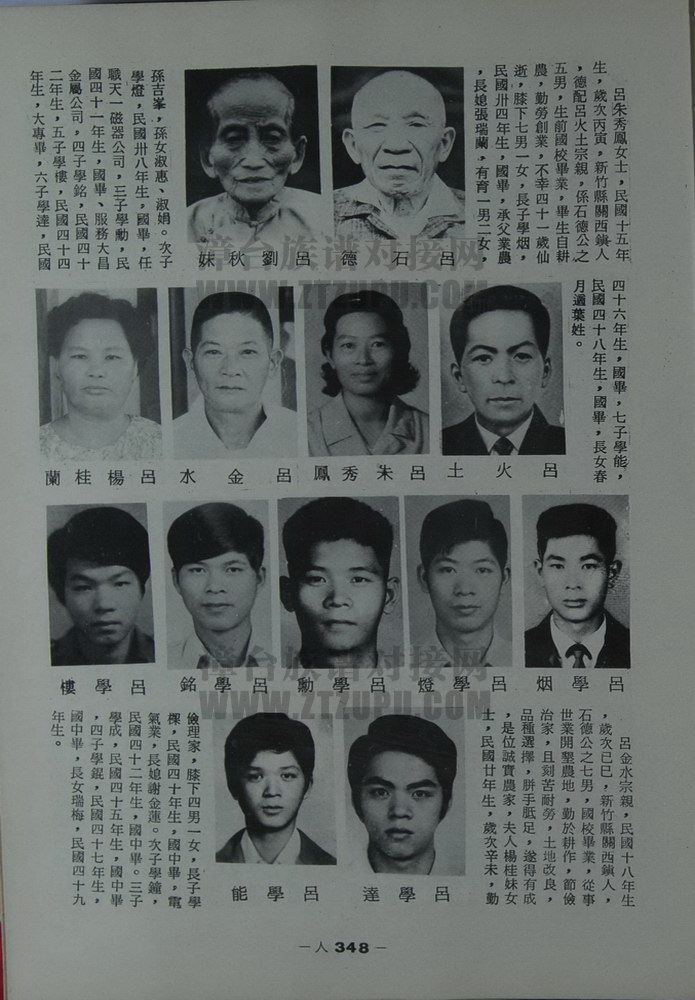 呂朱秀鳳女士，民國十五年
生，歲次丙寅，新竹縣關西鎮人
，德配呂火土宗親，係石德公之
五男，生前國校畢業，畢生自耕
農，勤勞創業，不幸四十一歲仙
逝，膝下七男一女，長子學烟，
民國卅四年生，國畢，承父業農
，長媳張瑞蘭，有育一男二女，
孫吉峯，孫女淑惠、淑娟。次子
學燈，民國卅八年生，國畢，任
職天一磁器公司，三子學勳，民
國四十一年生，國畢、服務大昌
金屬公司，四子學銘，民國四十
二年生，五子學樓，民國四十四
年生，大專畢，六子學達，民國
四十六年生，國畢，七子學能，
民國四十八年生，國畢，長女春
月適葉姓。
呂石德
呂劉秋妹
呂火土
呂朱秀鳳
呂金水
呂楊桂蘭
呂學烟
呂學燈
呂學勳
呂學銘
呂學樓
呂學達
呂學能
呂金水宗親，民國十八年生
，歲次己巳，新竹縣關西鎮人，
石德公之七男，國校畢業，從事
世業開墾農地，勤於耕作，節儉
治家，且刻苦耐勞，土地改良，
品種選擇，胼手胝足，遂得有成
，是位誠實農家，夫人楊桂妹女
士，民國廿年生，歲次辛未，勤
儉理家，膝下四男一女，長子學
樑，民國四十年生，國中畢，電
氣業，長媳謝金蓮。次子學鐘，
民國四十二年生，國中畢。三子
學成，民國四十五年生，國中畢
，四子學錕，民國四十七年生，
國中畢，長女瑞梅，民國四十九
年生。
—人 348—
漳台族谱对接网
WWW.ZTZUPU.COM
漳台族谱对接网
WWW.ZTZUPU.COM